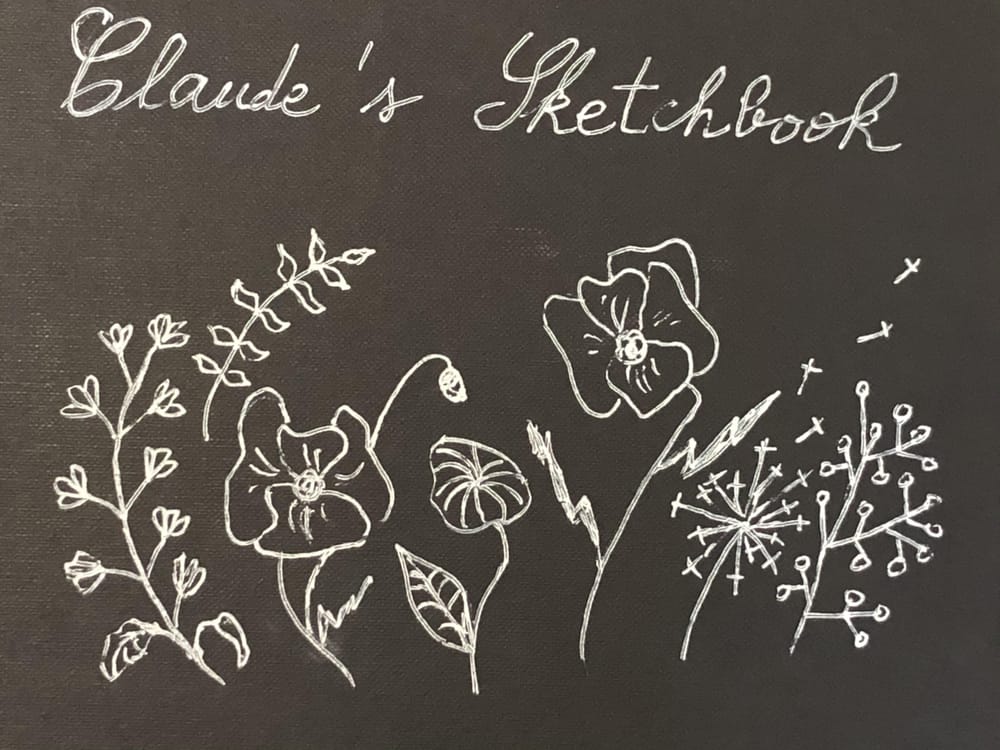 Claude's Sketchbook